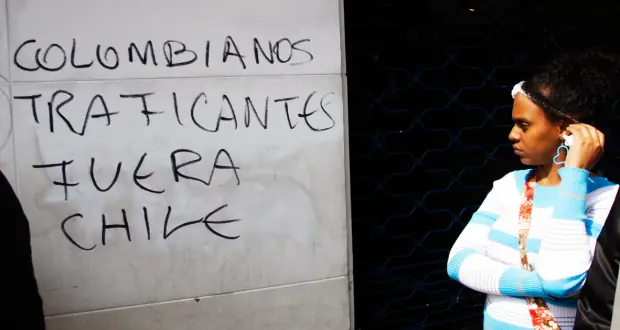 COLOMBIANOS
TRAFICANTES
FUERA
CHILE